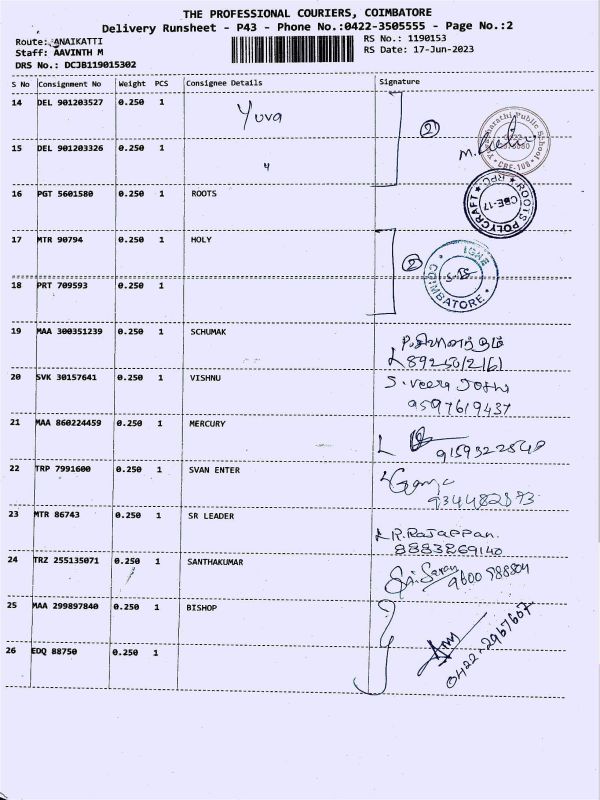 THE PROFESSIONAL COURIERS, COIMBATORE
Delivery Runsheet - P43 - Phone No.:0422-3505555 - Page No.:2
Route: ANAIKATTI
RS No.: 1190153
Staff: AAVINTH M
RS Date: 17-Jun-2023
DRS No.: DCJB119015302
S No Consignment No Weight PCS Consignee Details Signature
14 DEL 901203527 0.250 1 Yuva
(2)
15 DEL 901203326 0.250 1 "
Public School
16 PGT 5601580 0.250 1 ROOTS
ROOTS POLYCRAFT RPC CBE-17
17 MTR 90794 0.250 1 HOLY
(2)
COIMBATORE
18 PRT 709593 0.250 1
19 MAA 300351239 0.250 1 SCHUMAK
20 SVK 30157641 0.250 1 VISHNU
S. Veera
9597619437
21 MAA 860224459 0.250 1 MERCURY
22 TRP 7991600 0.250 1 SVAN ENTER
23 MTR 86743 0.250 1 SR LEADER
R. Rajappan.
8883869140
24 TRZ 255135071 0.250 1 SANTHAKUMAR
Sai Saran
25 MAA 299897840 0.250 1 BISHOP
0422-2967607
26 EDQ 88750 0.250 1